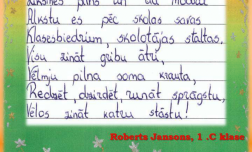 Alkstu es pēc skolas saras
Klasesbiedriem, skolotājas staltas.
Visu zināt gribu ātri,
Vēlmju pilna soma krauta,
Redzēt, dzirdēt, runāt sprāgstu,
Vēlos zināt katru stāstu!
Roberts Jansons, 1 .C klase